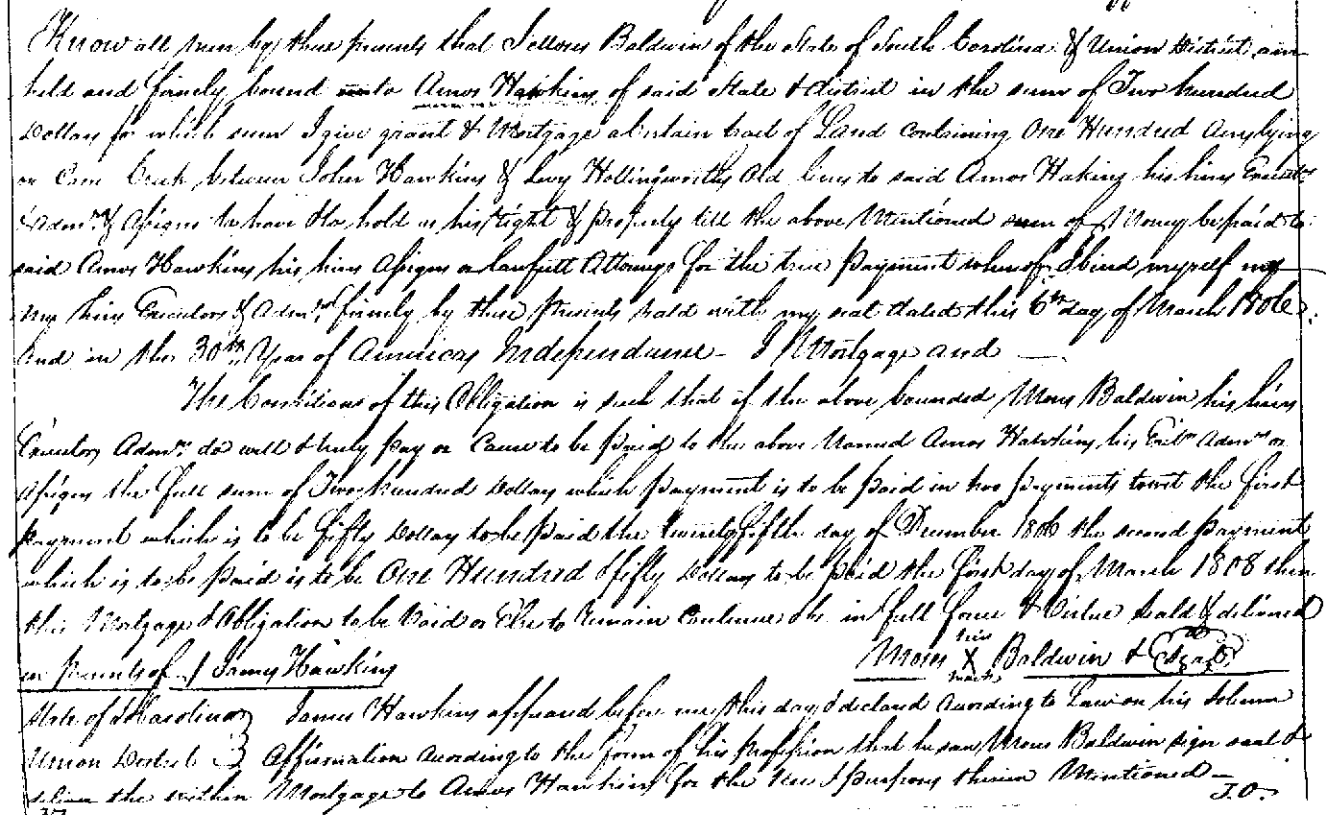 Know all men by these presents that I Moses Baldwin of the State of South Carolina & Union District am
held and firmly bound unto Amos Hawkins of said State & district in the sum of Two hundred
Dollars for which sum I give grant & Mortgage a certain tract of Land Containing One Hundred Acres lying
on Cane Creek between John Hawkins & Levy Hollingsworths Old line to said Amos Haking his hirs Executrs
Admrs & Assigns to have & to hold as his right & property till the above Mentioned sum of Money be paid to
said Amos Hawkins his hirs Assigns or lawfull Attorney for the true payment whereof I bind myself my
my hirs Executors & Admrs firmly by these presents seald with my seal dated this 6th day of March 1806
And in the 30th Year of Americas Independense - I Mortgage and
The Conditions of this Obligation is such that if the above bounded Moses Baldwin his hirs
Executors Admrs do well & truly pay or Cause to be paid to the above Named Amos Hawkins his Exrs Admrs or
Assigns the full sum of Two hundred Dollars which payment is to be paid in two payments towit the first
payment which is to be fifty Dollars to be paid the twenty fifth day of December 1806 the second payment
which is to be paid is to be One Hundred & fifty Dollars to be paid the first day of March 1808 then
this Mortgage & Obligation to be Void or Else to Remain Continue in full force & Virtue Seald & delivered
in presents of James Hawkins Moses his X mark Baldwin & Seal
State of S Carolina James Hawkins appeared before me this day & declared According to Law on his Solemn
Union District Affirmation According to the form of his profession that he saw Moses Baldwin sign seal &
deliver the within Mortgage to Amos Hawkins for the Uses & purposes therein Mentioned -
J.O.
37